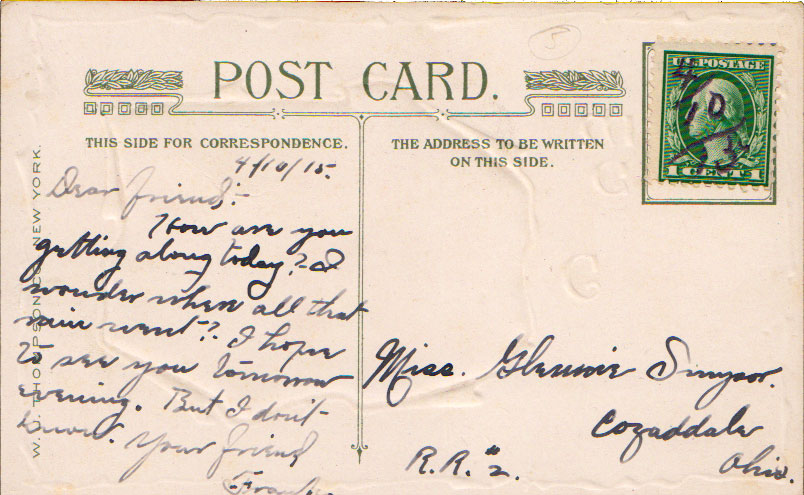 POST CARD.
THIS SIDE FOR CORRESPONDENCE.
THE ADDRESS TO BE WRITTEN
ON THIS SIDE.
U.S. POSTAGE
1 CENT 1
4
10
15
4/10/15.
Dear friend:-
How are you
getting along today?- I
wonder when all that
rain went? I hope
to see you tomorrow
evening. But I don't
know. Your friend
Frank
Miss. Glennie Simpson.
Cozaddale
Ohio.
R.R. #2.
W. J. THOMPSON CO. NEW YORK.
5